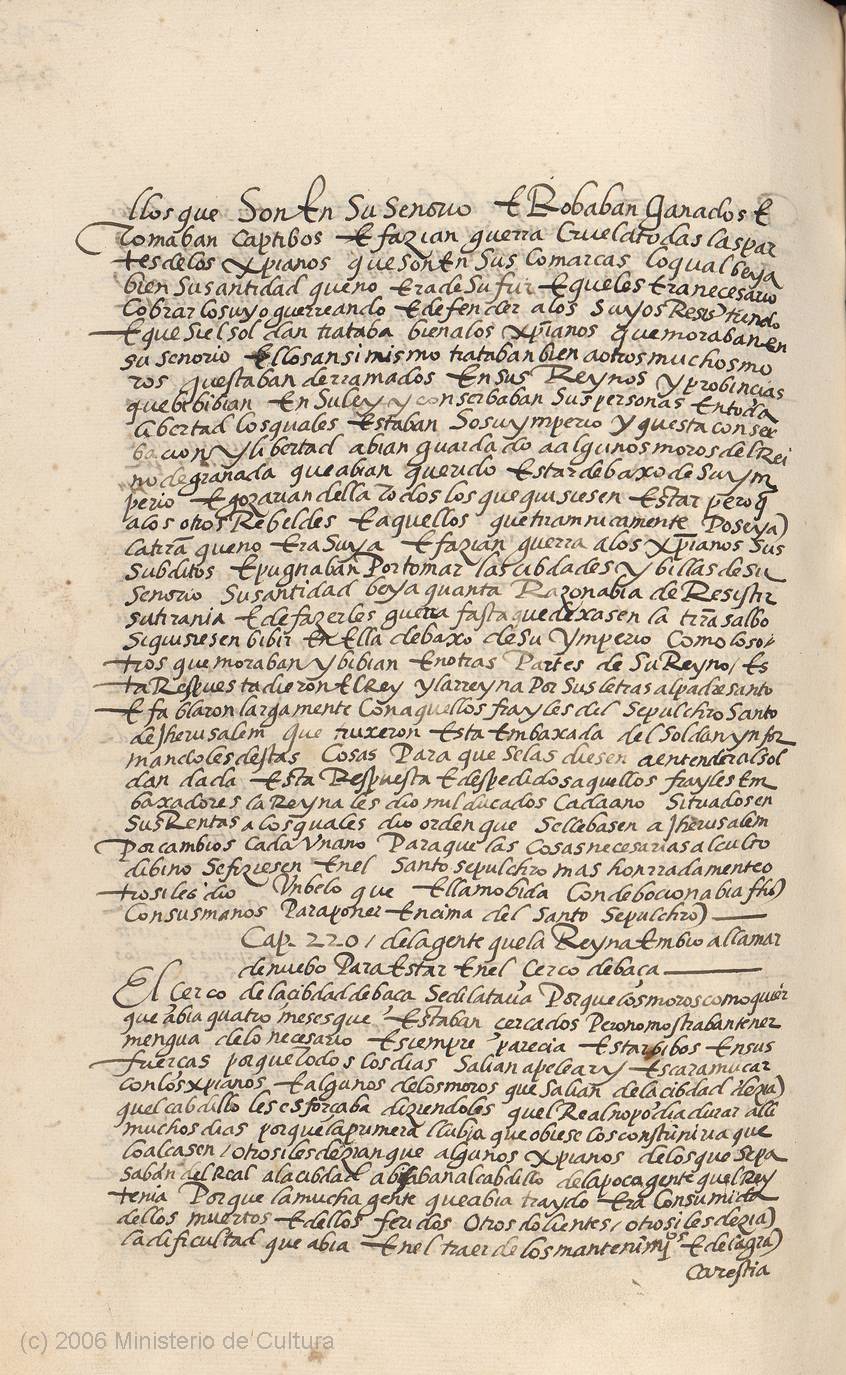 llos que son en su senorio e Robaban ganados e
tomaban captibos e fazian guerra cruel a todas las par
tes de los xpianos que son en sus comarcas lo qual beya
bien su santidad que no era de sufrir e que les era necesario
cobrar lo suyo guerreando e defender a los suyos Resistiendo
e que si el sol dan trataba bien a los xpianos que moraban en
su senorio ellos ansi mismo trataban bien a otros muchos mo
ros questaban derramados en sus Reynos y probincias
que bibian en su ley y conserbaban sus personas en toda
libertad los quales estaban so su ymperio y questa conser
bacion y libertad abian guardado a algunos moros del Rei
no de granada que abian querido estar debaxo de su ym
perio e gozarian della todos los que quisiesen estar pero q
a los otros Rebeldes e a aquellos que tiranicamente poseya
la trra que no era suya e fazian guerra a los xpianos sus
subditos e pugnaban por tomar las cibdades y billas de su
senorio su santidad beya quanta Razon abia de Resistir
su tirania e de fazerles guerra fasta que dexasen la trra salbo
si quisiesen bibir en ella debaxo de su ymperio como los o/
tros que moraban y bibian en otras partes de su Reyno / es
ta Respuesta dieron el Rey y la rreyna por sus letras al padre santo
e fablaron largamente con aquellos frayles del sepulchro santo
de Jherusalem que truxeron esta embaxada del soldan ynfor
mandoles destas cosas para que se las diesen a entender al sol
dan dada esta Respuesta e despedidos aquellos frayles em
baxadores la Reyna les dio mil ducados cada ano situados en
sus Rentas a los quales dio orden que se llebasen a Jherusalem
por cambios cada un ano para que las cosas necesarias al culto
dibino se fiziesen en el santo sepulchro mas honrradamente o
trosi les dio un belo que ella mobida con debocion abia fho
con sus manos para poner encima del santo sepulchro
Cap. 220 / de la gente que la Reyna embio a llamar
de nuebo para estar en el cerco de baça
El cerco de la cibdad de baça se dilataua porque los moros como quier
que abia quatro meses que estaban cercados pero no mostraban tener
mengua de lo necesario e siempre parecia estar bibos en sus
fuerças porque todos los dias salian a pelear y escaramuçar
con los xpianos e algunos de los moros que salian de la cibdad dezia
quel cabdillo les esforçaba diziendoles quel Real no podia durar alli
muchos dias porque la primera llubia que obiese los constriniria que
lo alcasen / otrosi les dezian que algunos xpianos de los que se pa
saban del Real a la cibdad abisaban al cabdillo de la poca gente quel Rey
tenia porque la mucha gente que abia traydo era consumida
dellos muertos e dellos feridos otros dolientes / otrosi les dezia
la dificultad que abia en el traer de los mantenimios e de la gra
carestia
(c) 2006 Ministerio de Cultura